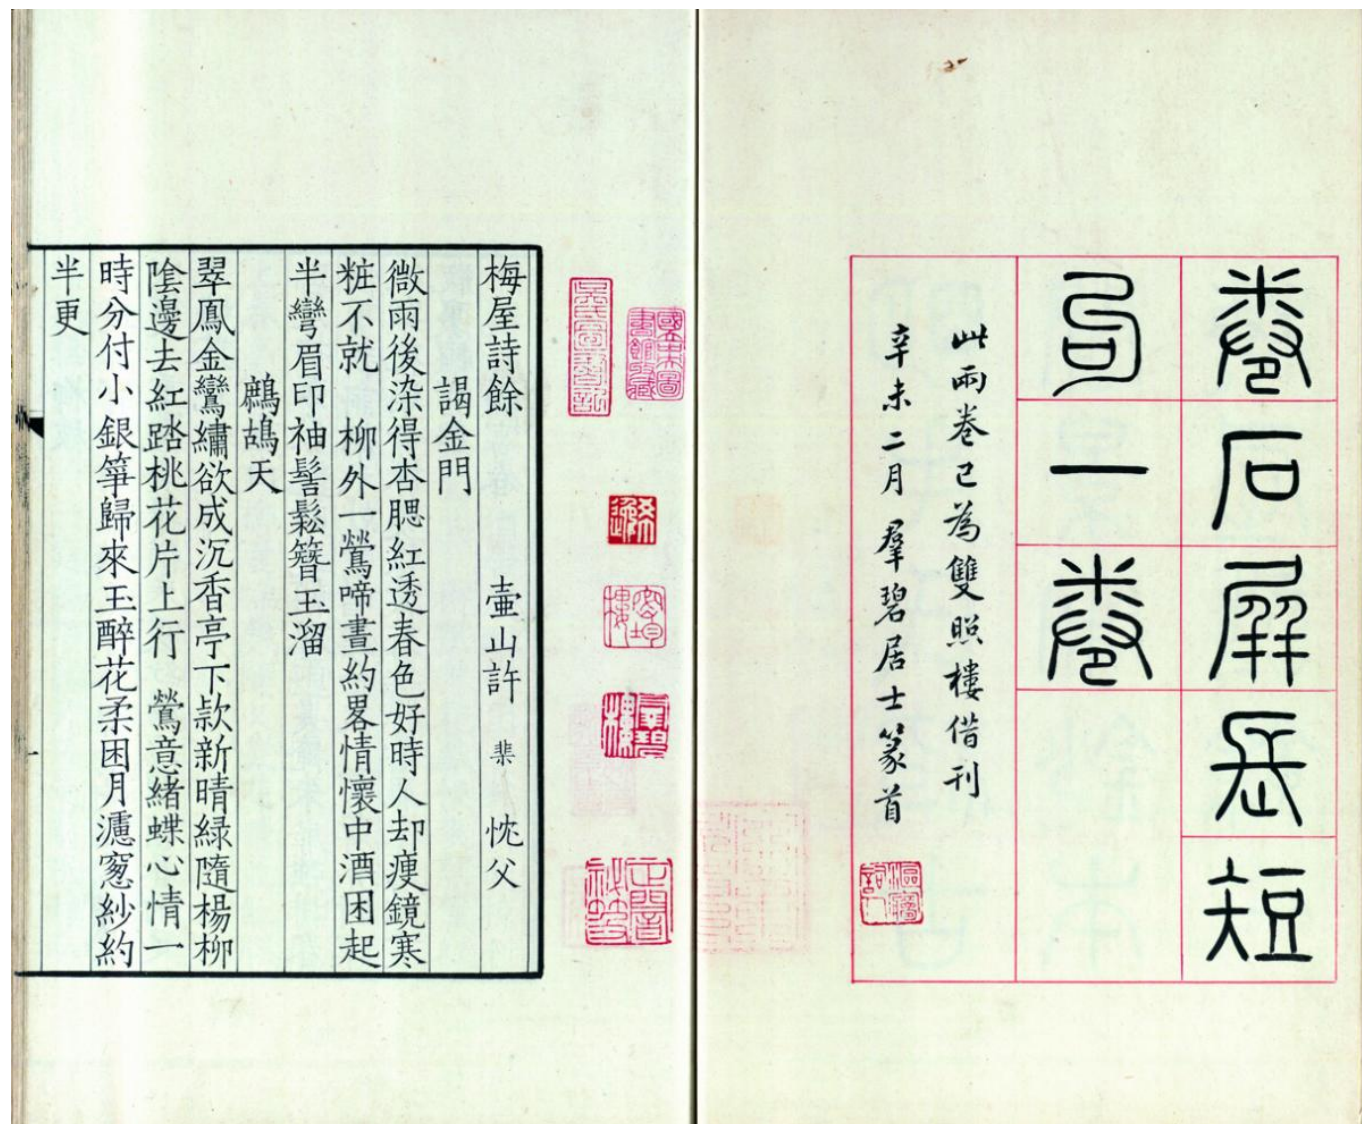 卷石屏長短
句一卷
此兩卷已為雙照樓借刊
辛未二月羣碧居士篆首
國立中央圖書館收藏
羣碧樓
梅屋詩餘　壷山許　棐　忱父
謁金門
微雨後染得杏腮紅透春色好時人却瘦鏡寒
粧不就　柳外一鶯啼晝約畧情懷中酒困起
半彎眉印袖髻鬆簪玉溜
鷓鴣天
翠鳳金鸞繡欲成沉香亭下款新晴緑隨楊柳
陰邊去紅踏桃花片上行　鶯意緒蝶心情一
時分付小銀筝歸來玉醉花柔困月濾窻紗約
半更